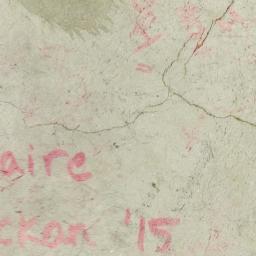 aire
ckan '15